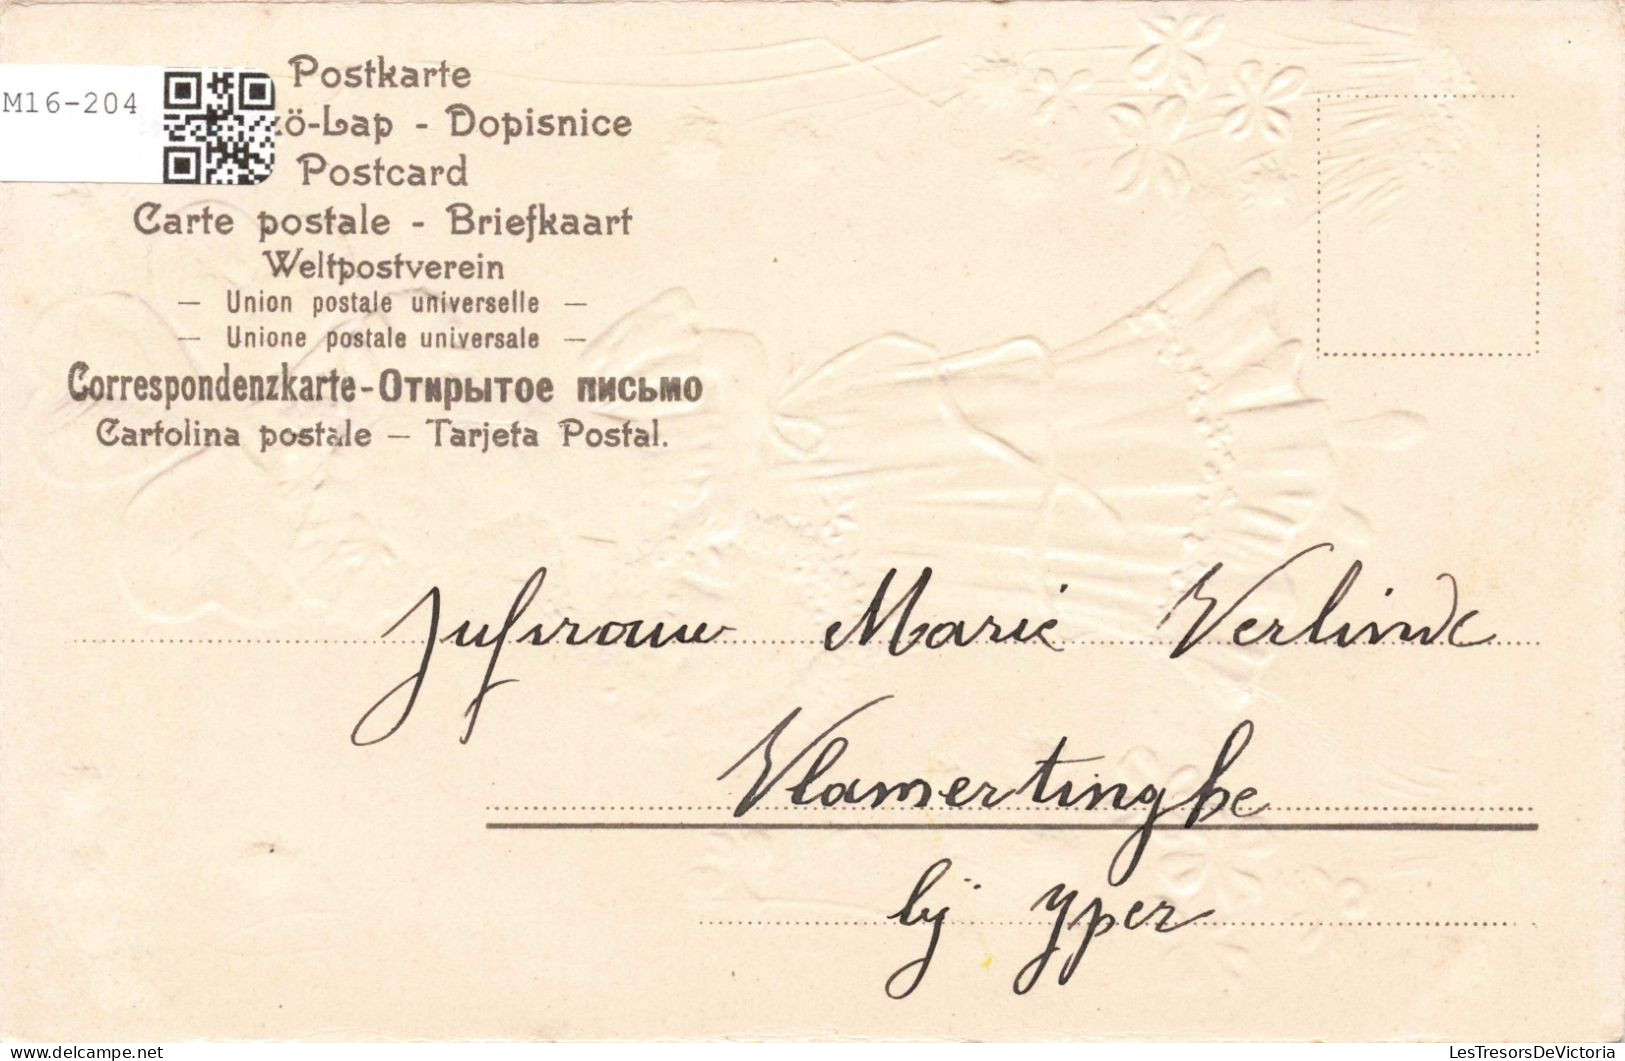 M16-204
Postkarte
ö-Lap - Dopisnice
Postcard
Carte postale - Briefkaart
Weltpostverein
— Union postale universelle —
— Unione postale universale —
Correspondenzkarte-Открытое письмо
Cartolina postale — Tarjeta Postal.
Jufvrouw Marie Verlinde
Vlamertinghe
bij Yper
LesTresorsDeVictoria